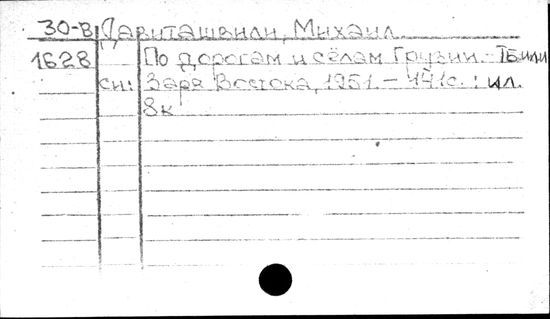 30-В Давиташвили, Михаил
1628 По дорогам и сёлам Грузии. - Тбили
си: Заря Востока, 1951. - 441с.: ил.
8к